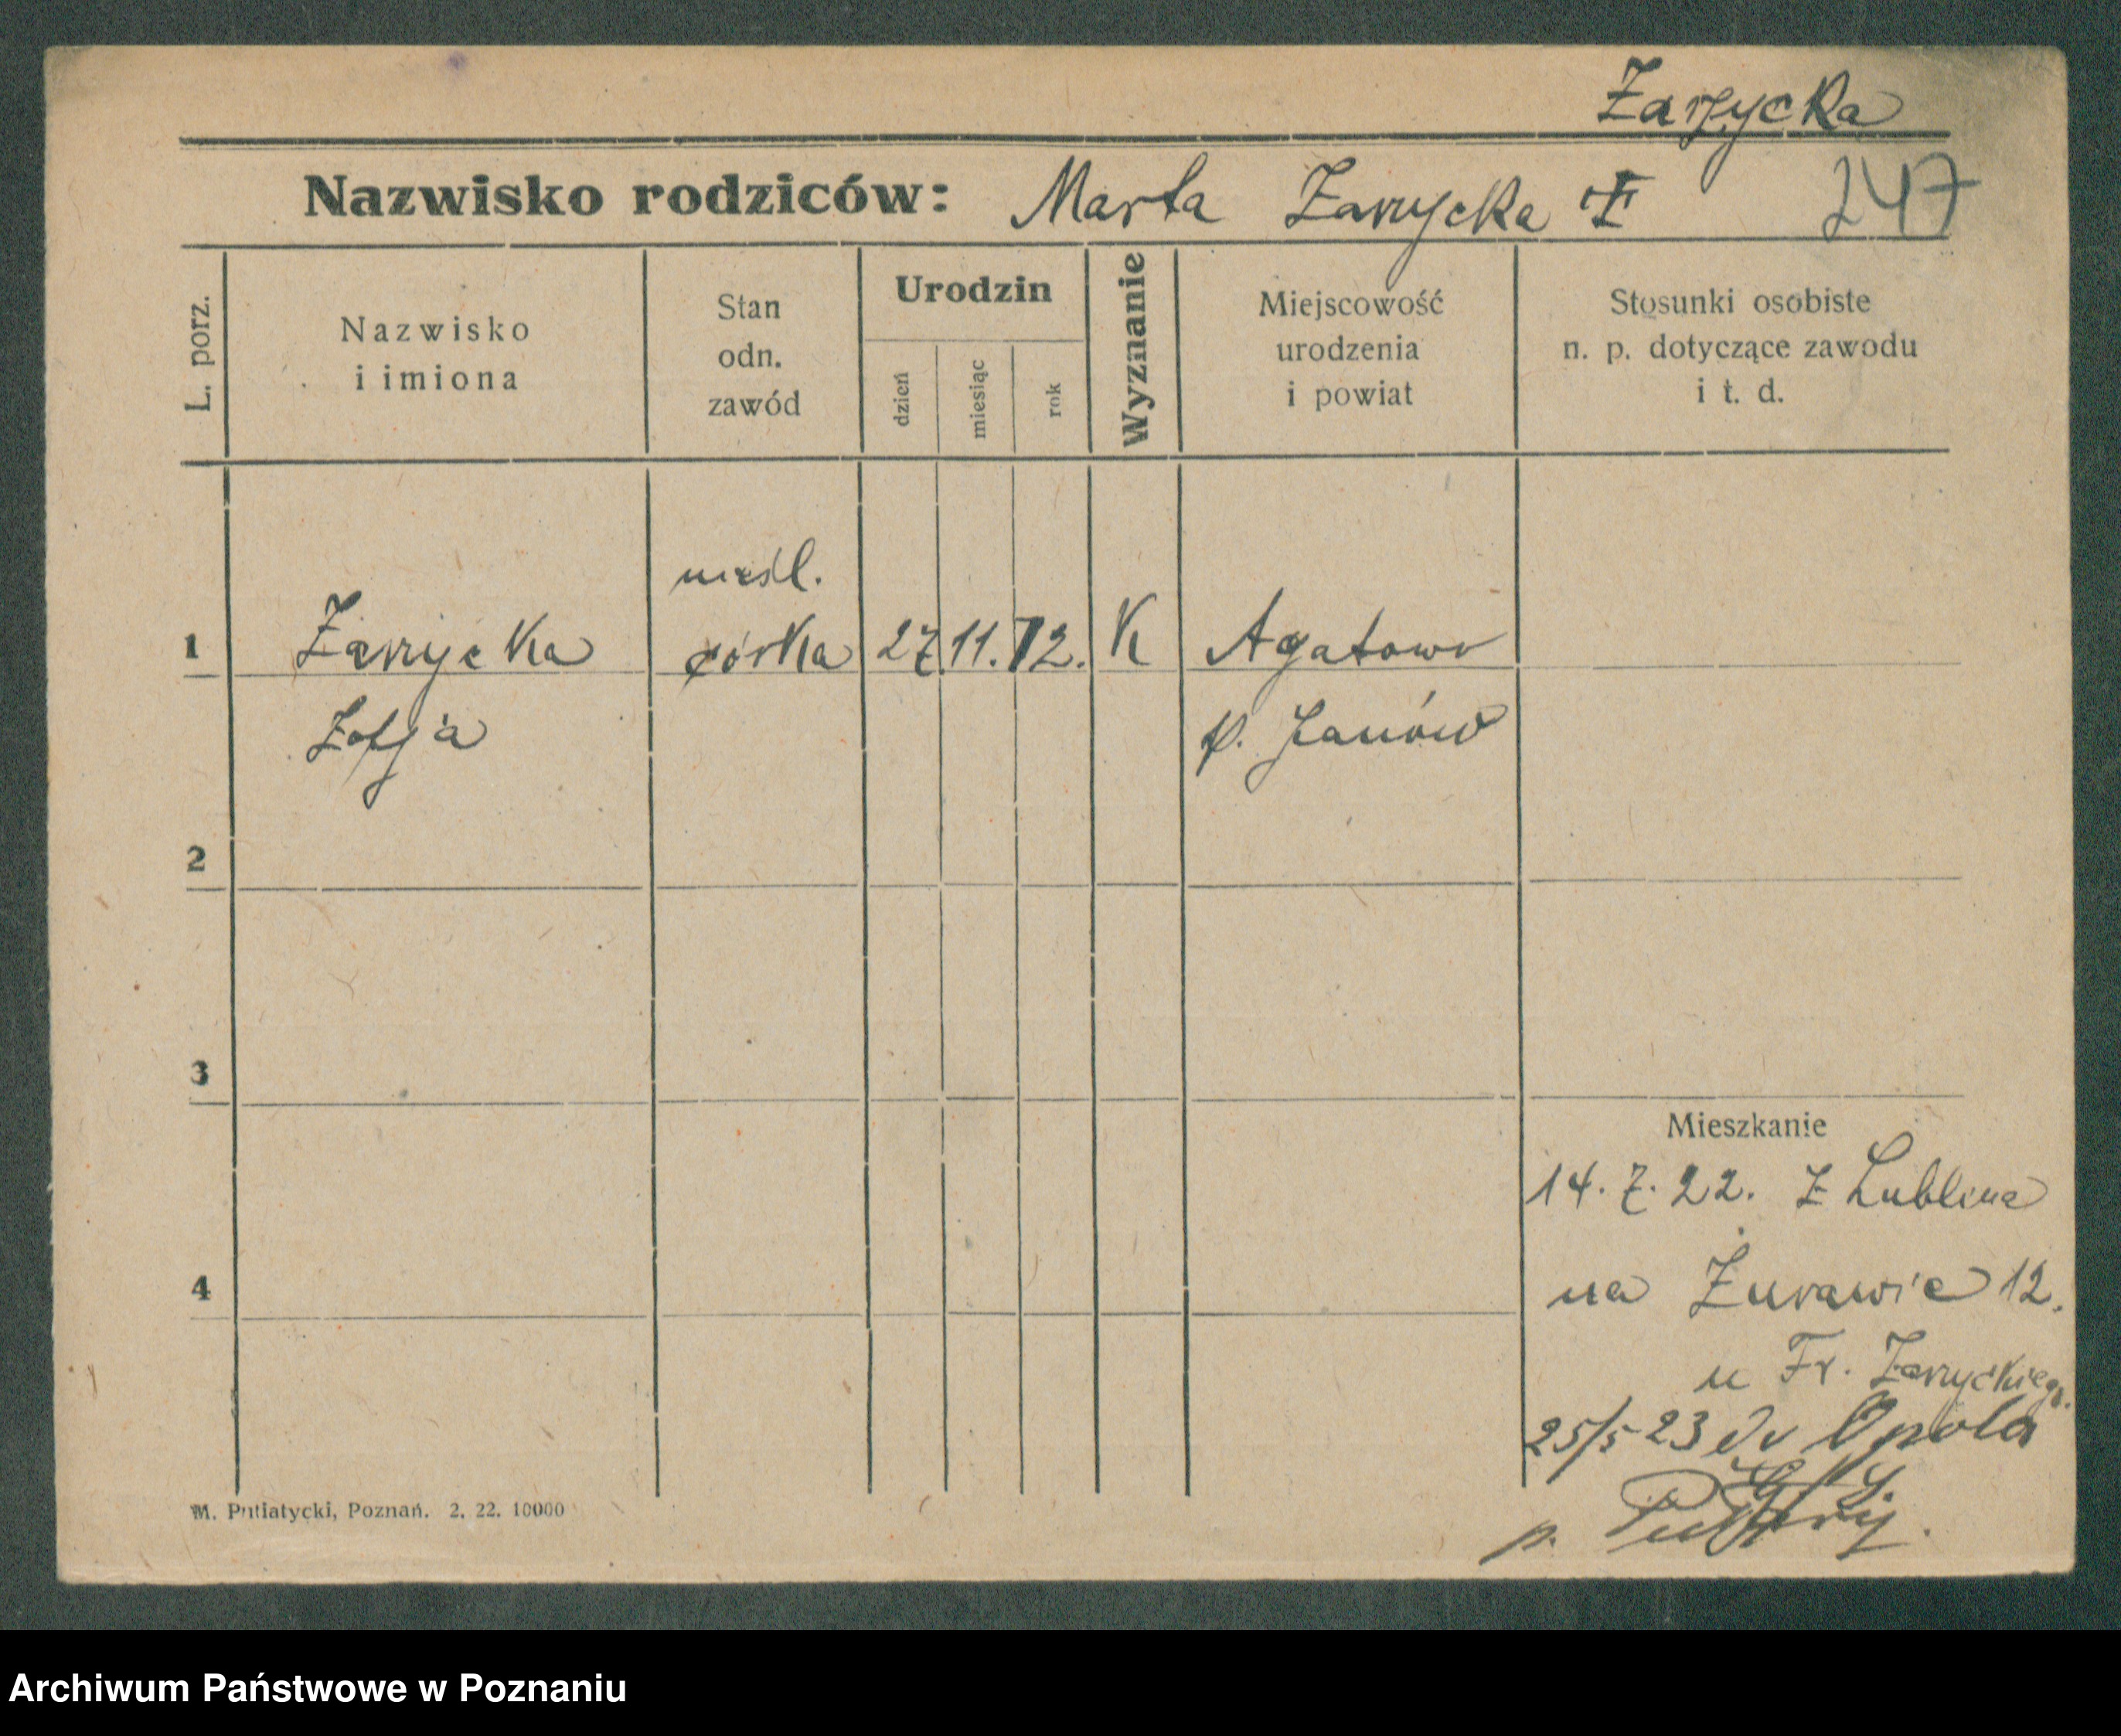 Zarzycka
Nazwisko rodziców: Marta Zarzycka
247
L. porz.
Nazwisko
i imiona
Stan
odn.
zawód
Urodzin
dzień
miesiąc
rok
Wyznanie
Miejscowość
urodzenia
i powiat
Stosunki osobiste
n. p. dotyczące zawodu
i t. d.
nieśl.
1 Zarzycka córka 27. 11. 12. K Agatowo
Zofja p. Janów
2
3
Mieszkanie
14. 7. 22. z Lublina
4
na Żurawie 12.
u Fr. Zarzyckiego.
25/5 23 do Opola
p.
M. Putiatycki, Poznań. 2. 22. 10000
Archiwum Państwowe w Poznaniu